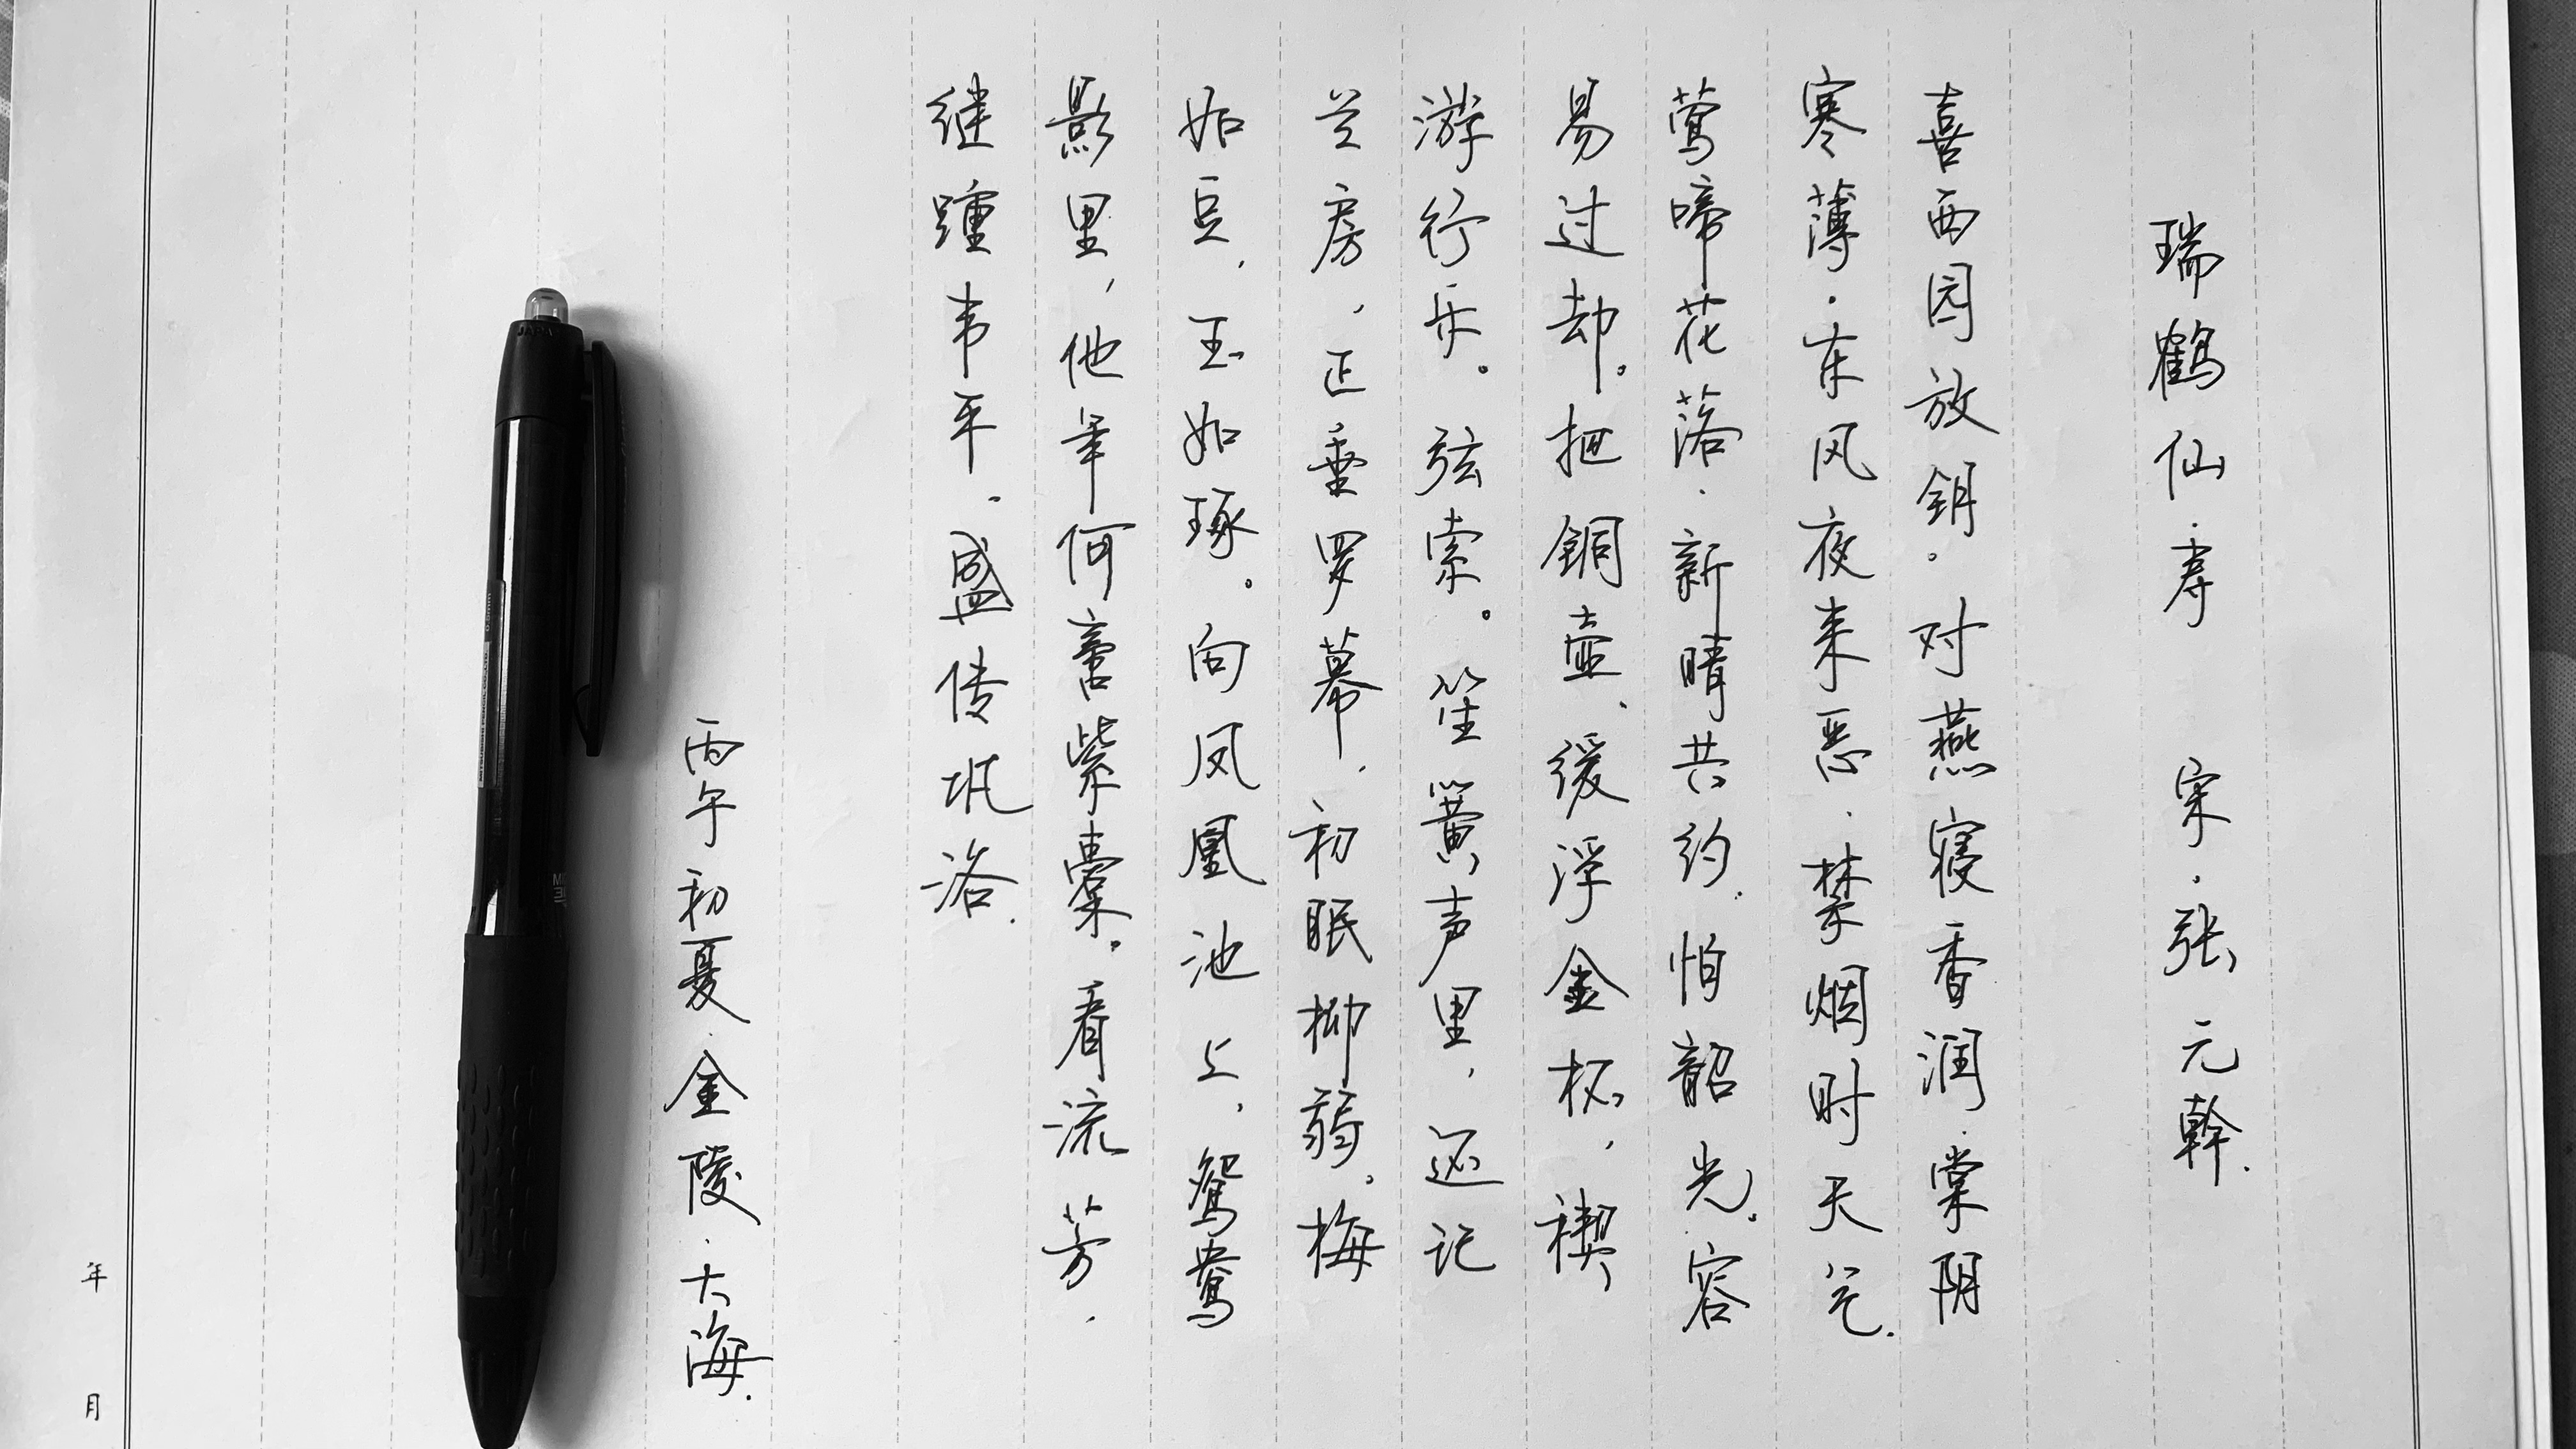 瑞鹤仙·寿 宋·张元幹.
喜西园放钥.对燕寝香润.棠阴
寒薄.东风夜来恶.禁烟时天气.
莺啼花落.新晴共约.怕韶光.容
易过却.把铜壶、缓浮金杯,禊
游行乐。弦索。笙簧声里,还记
兰房,正垂罗幕,初眠柳弱.梅
如豆,玉如琢。向凤凰池上,鸳鸯
影里,他年何啻紫橐。看流芳.
继踵韦平、盛传巩洛.
丙午初夏.金陵.大海.
年
月